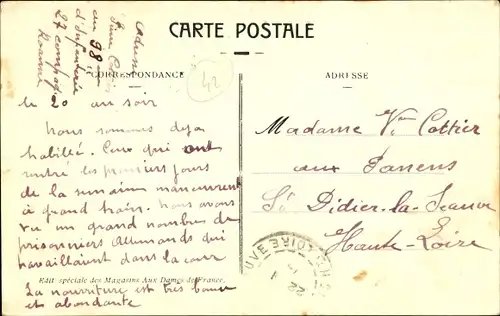 CARTE POSTALE
Adresse
au 98me
d'infanterie
27 compagnie
Roanne
42
CORRESPONDANCE
ADRESSE
le 20 au soir
Nous sommes deja
habillé. Ceux qui ont
rentré les premiers jours
de la semaine manœuvrent
à grand train. Nous avons
vu un grand nombre de
prisonniers Allemands qui
travaillaient dans la cour
Edit spéciale des Magasins Aux Dames de France.
La nourriture est très bonne
et abondante
Madame Vve Cottier
aux
St Didier-la-Seauve
Haute-Loire